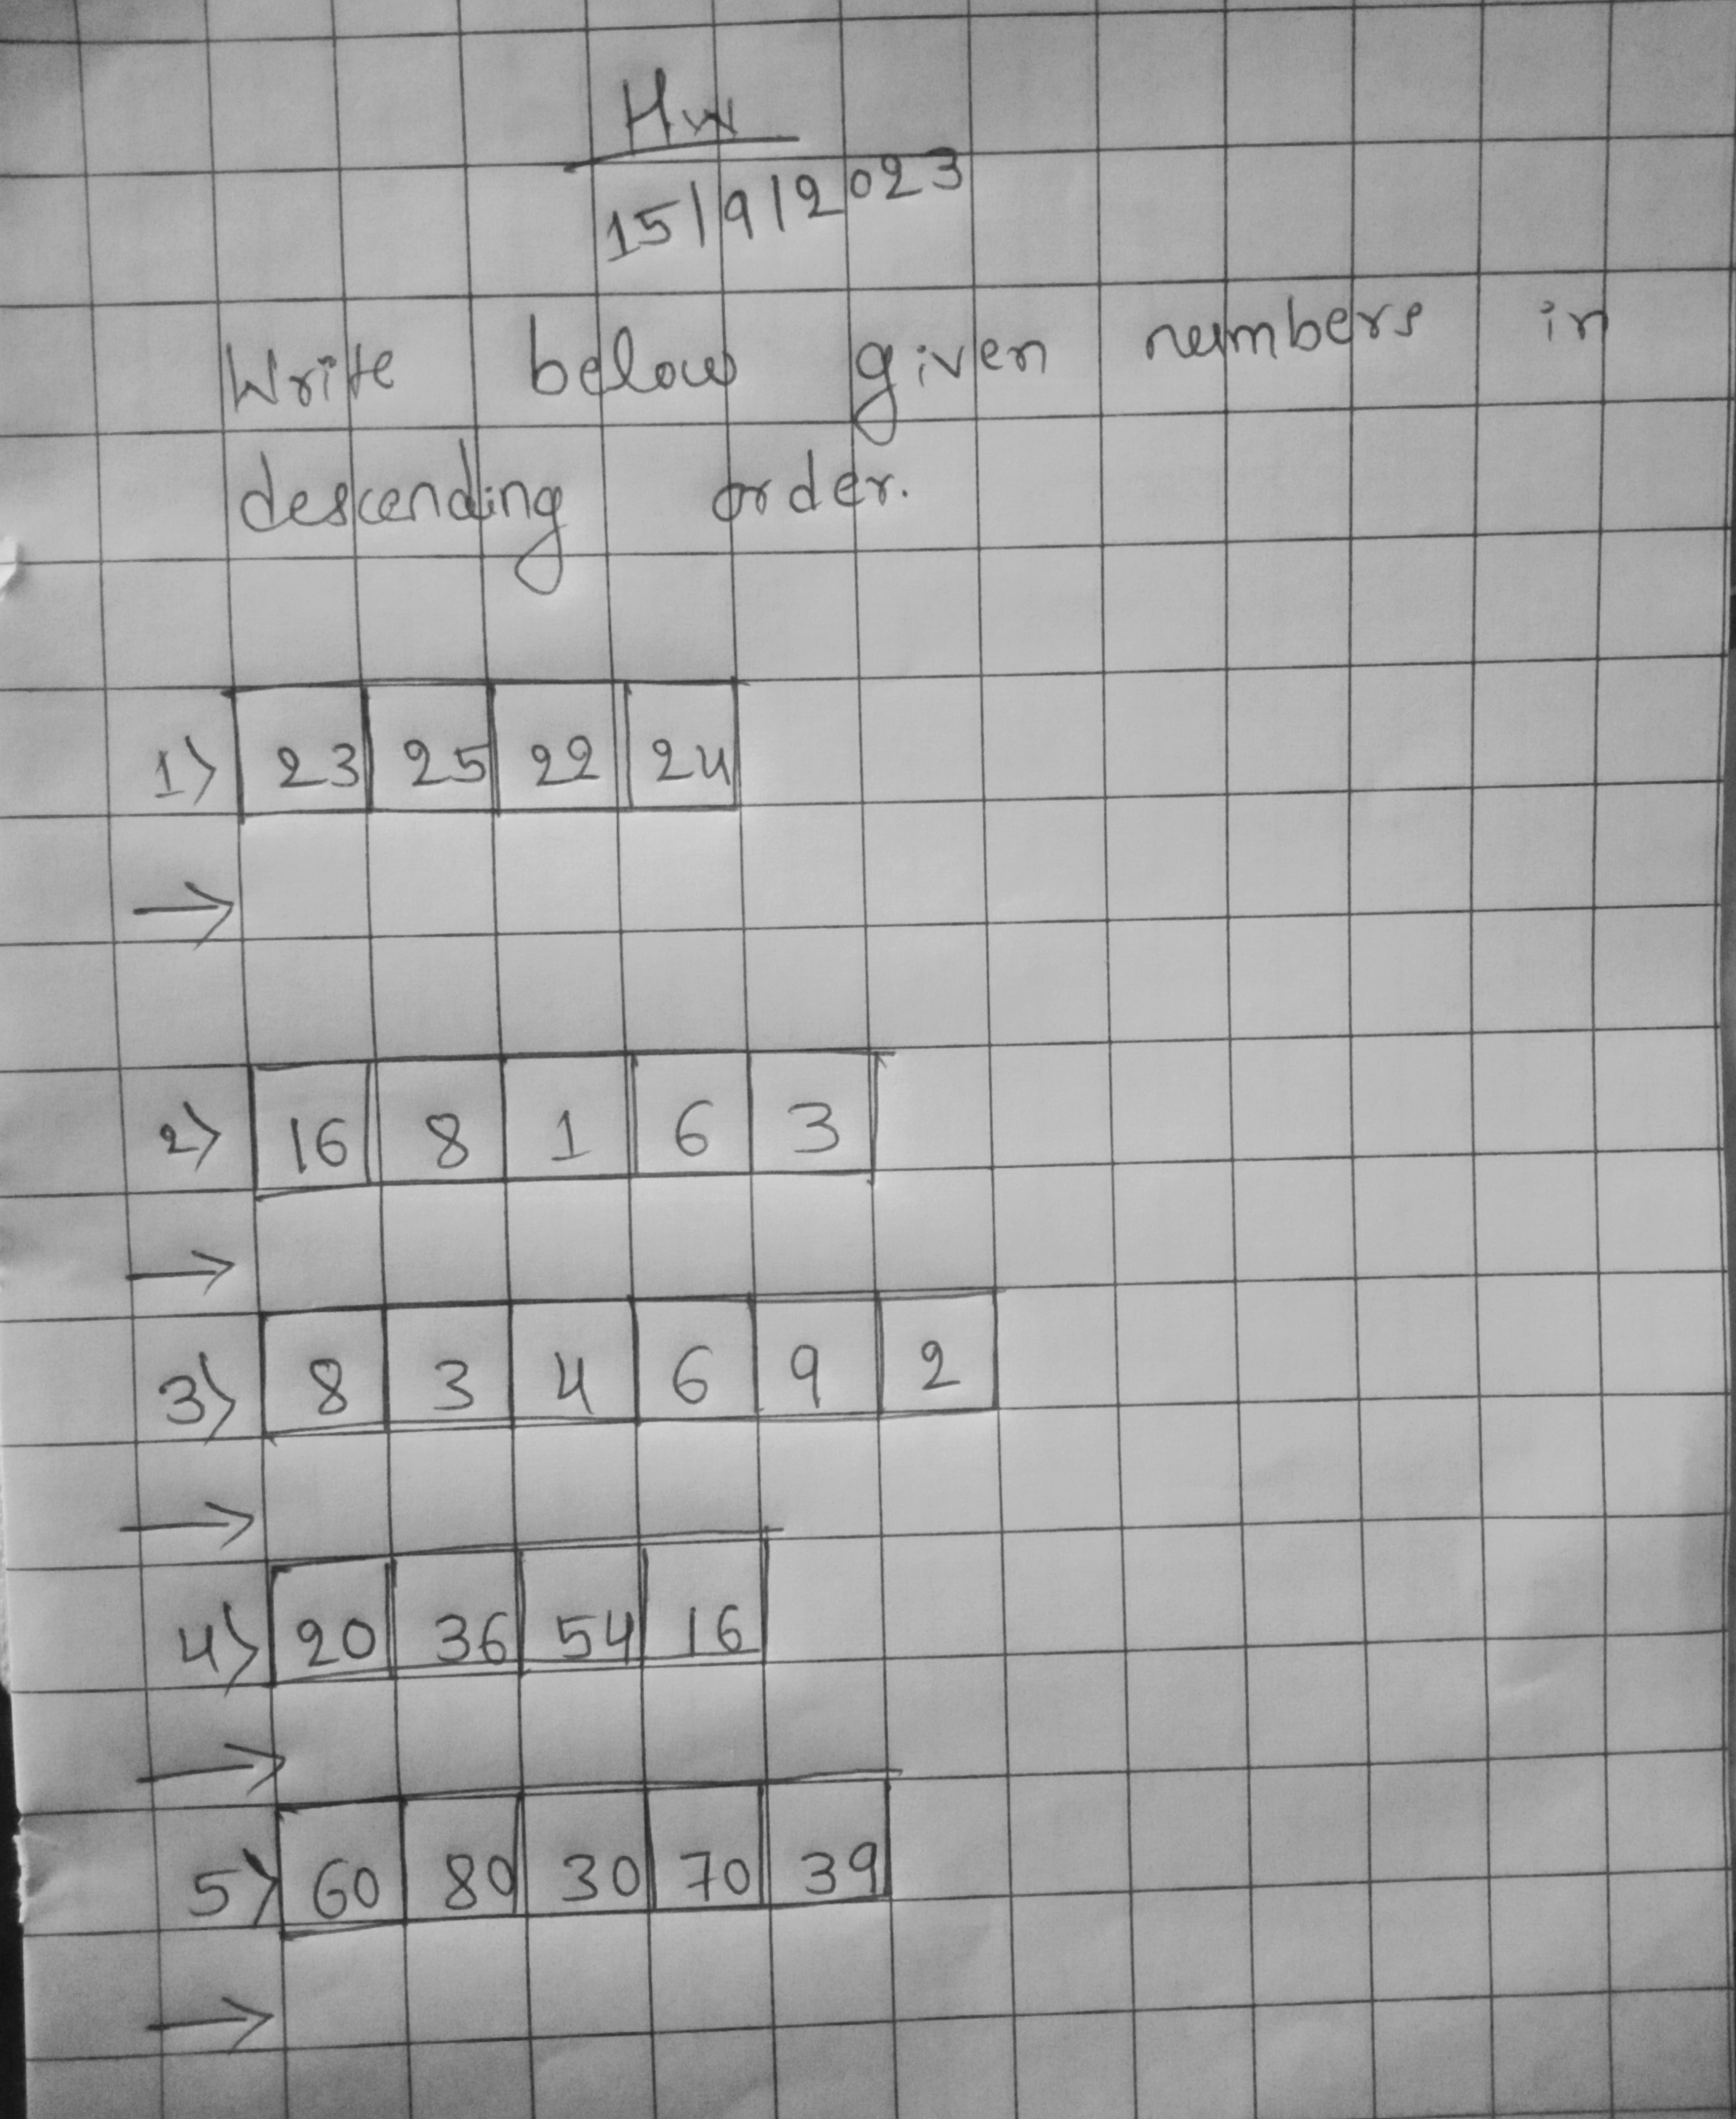 Hw
15/9/2023
Write below given numbers in
descending order.
1) 23 25 22 24
→
2) 16 8 1 6 3
→
3) 8 3 4 6 9 2
→
4) 20 36 54 16
→
5) 60 80 30 70 39
→